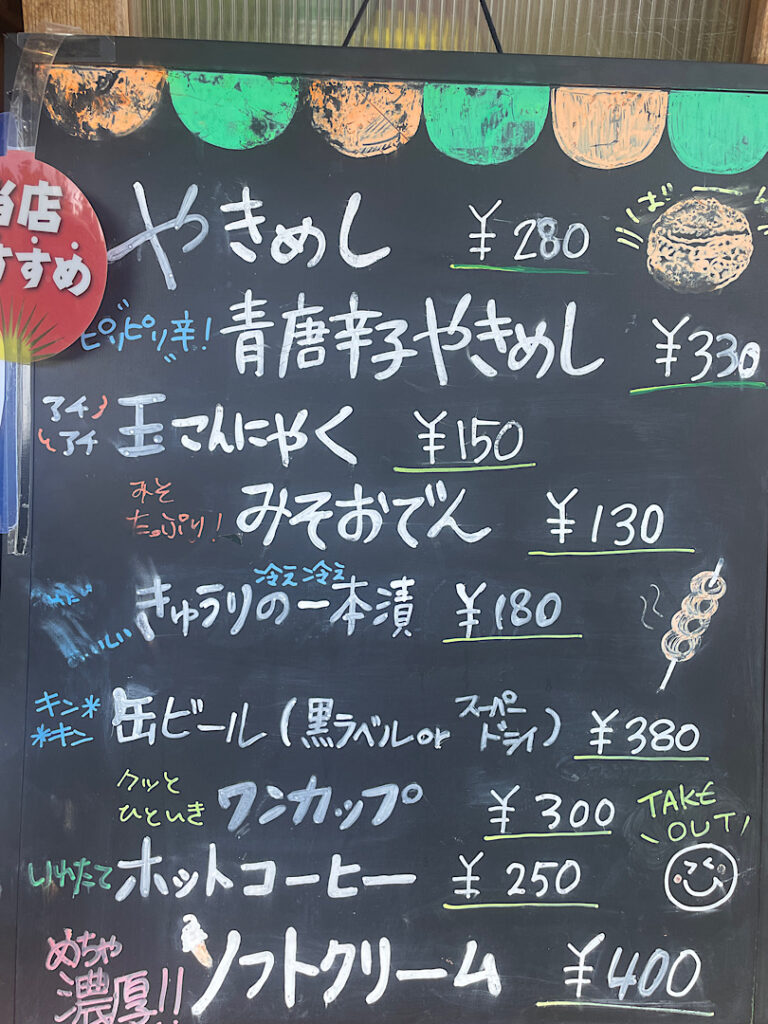 当店
すすめ
やきめし ¥280
ばーん
ピリピリ辛! 青唐辛子やきめし ¥330
アチ
アチ
玉こんにゃく ¥150
みそ
たっぷり!
みそおでん ¥130
冷え冷え
きゅうりの一本漬 ¥180
おいしい
キン*
*キン
缶ビール(黒ラベルor スーパードライ) ¥380
クッと
ひといき
ワンカップ ¥300
TAKE
OUT!
いれたて ホットコーヒー ¥250
めちゃ
濃厚!!
ソフトクリーム ¥400